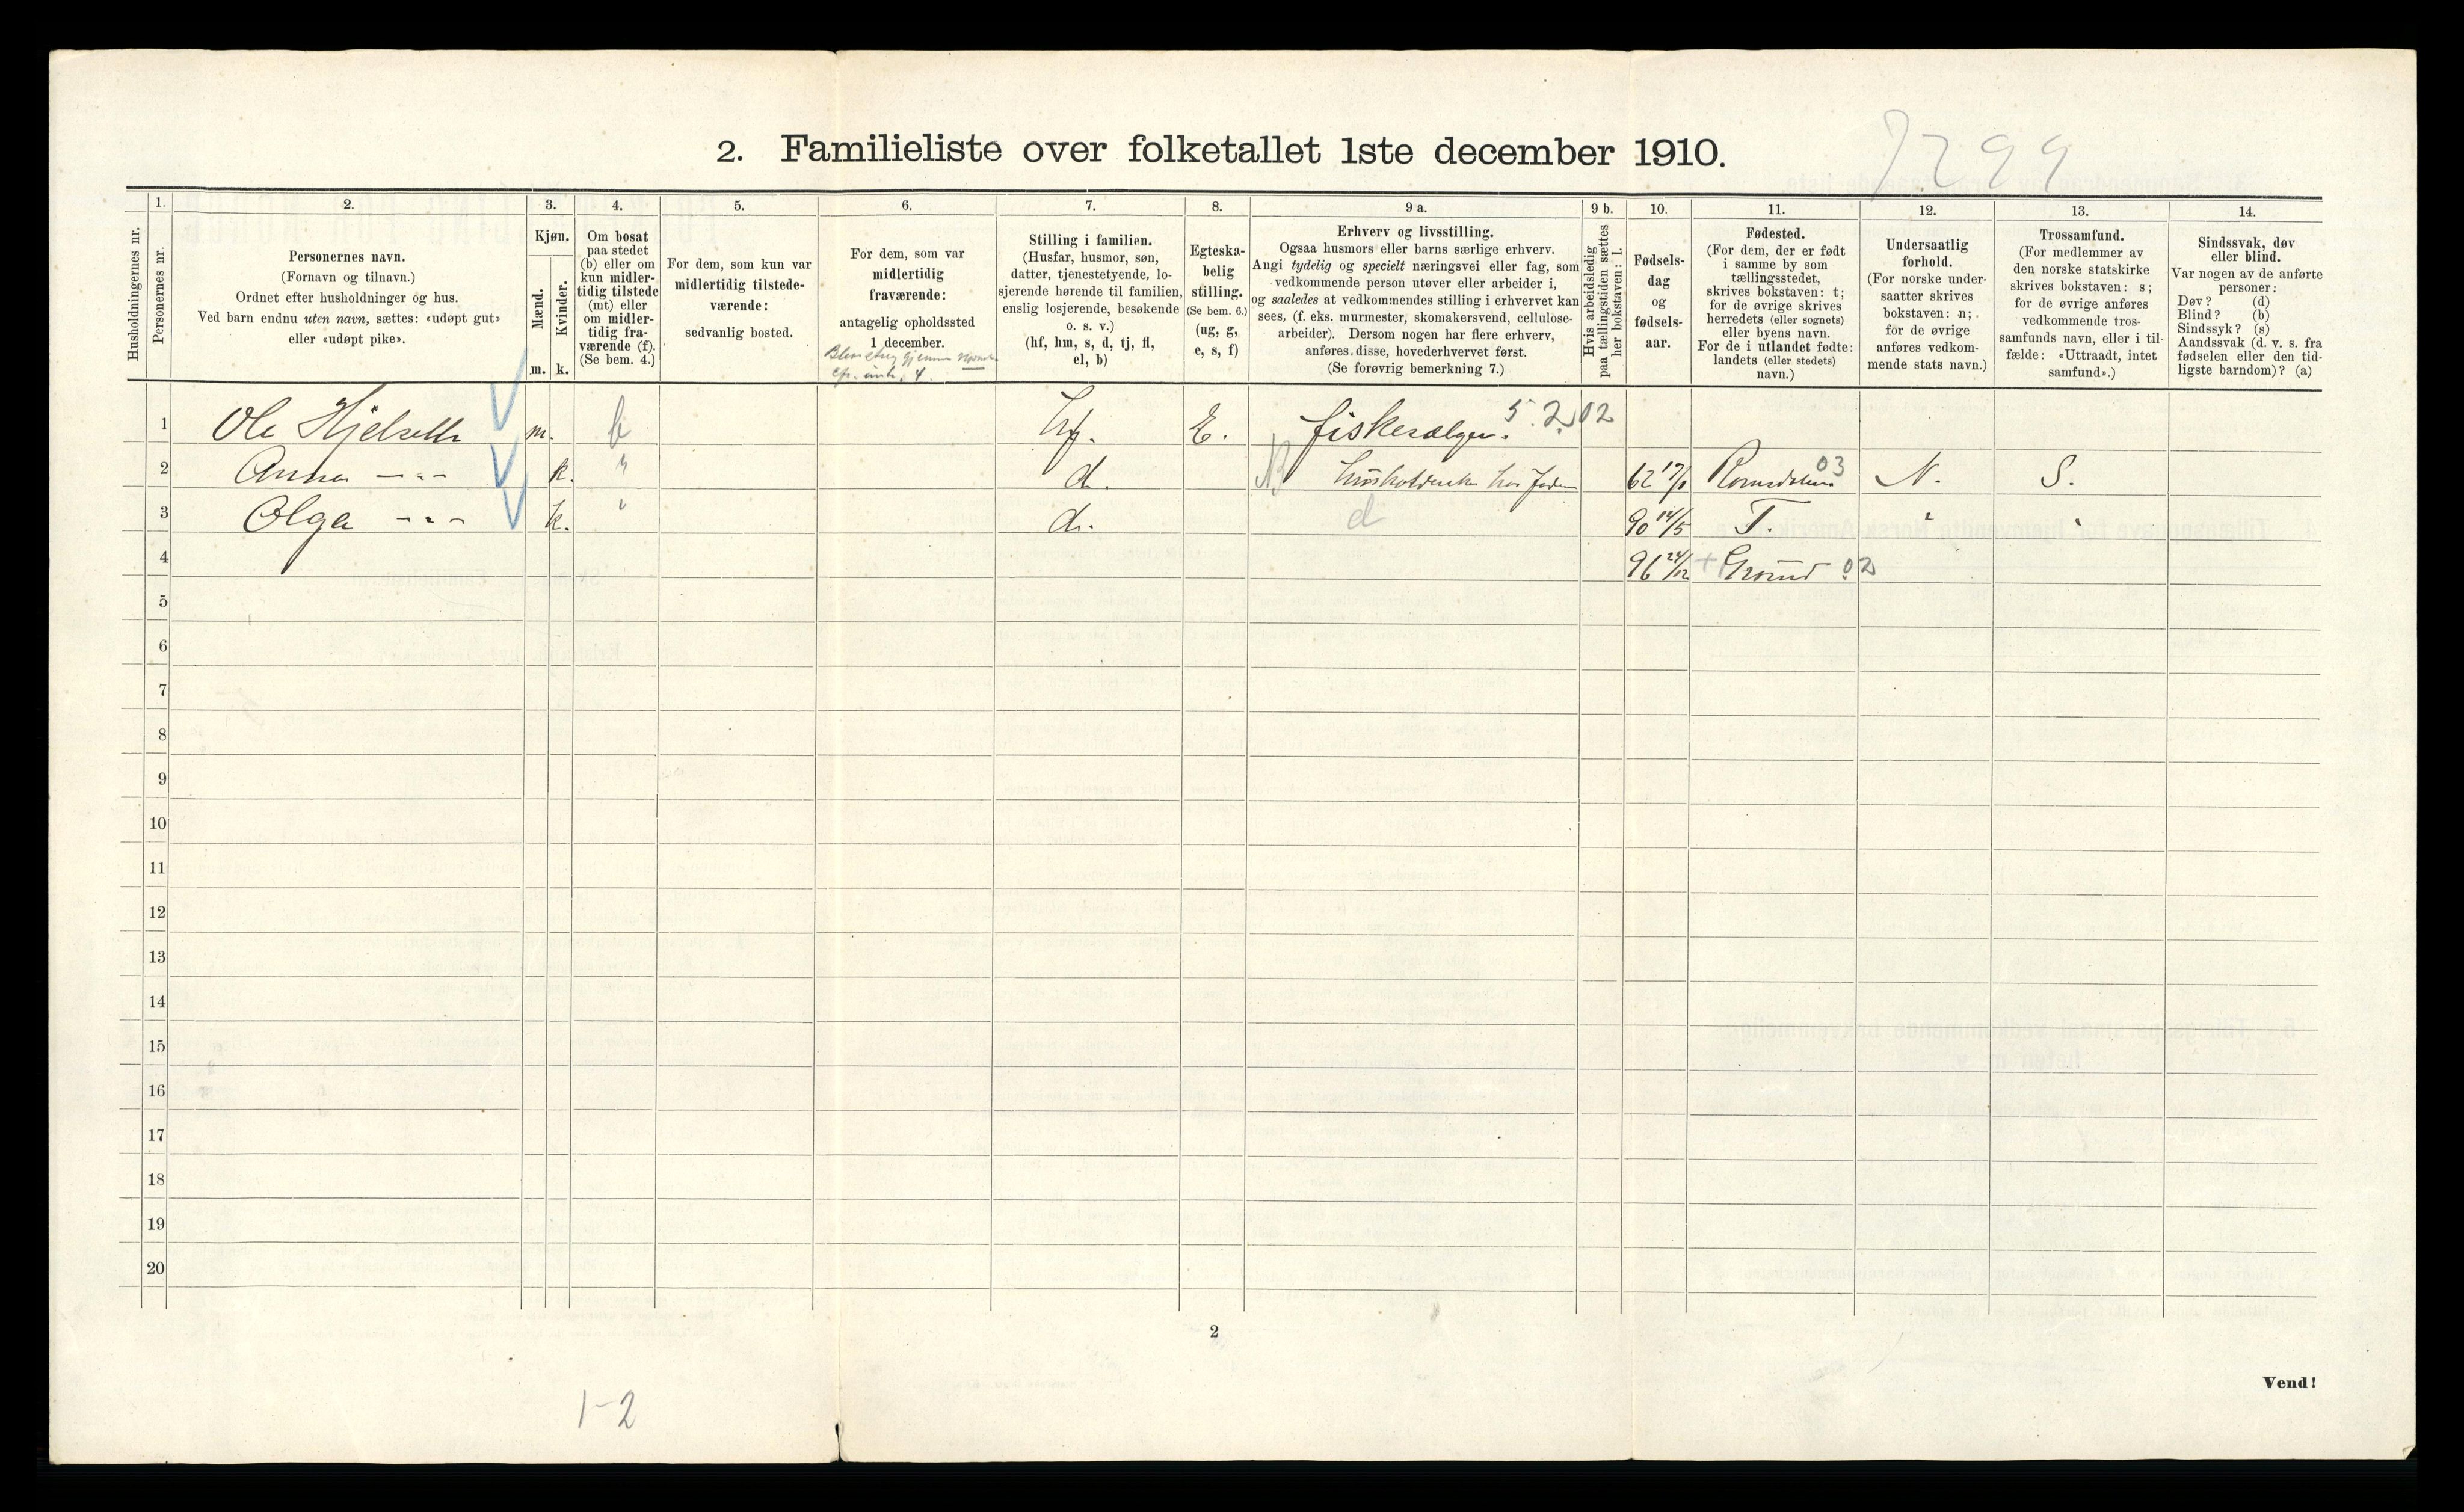 7299
2. Familieliste over folketallet 1ste december 1910.
Husholdningernes nr.
1.
Personernes nr.
2.
Personernes navn.
(Fornavn og tilnavn.)
Ordnet efter husholdninger og hus.
Ved barn endnu uten navn, sættes: «udøpt gut»
eller «udøpt pike».
3.
Kjøn.
Mænd.
Kvinder.
m. k.
4.
Om bosat
paa stedet
(b) eller om
kun midler-
tidig tilstede
(mt) eller
om midler-
tidig fra-
værende (f).
(Se bem. 4.)
5.
For dem, som kun var
midlertidig tilstede-
værende:
sedvanlig bosted.
6.
For dem, som var
midlertidig
fraværende:
antagelig opholdssted
1 december.
7.
Stilling i familien.
(Husfar, husmor, søn,
datter, tjenestetyende, lo-
sjerende hørende til familien,
enslig losjerende, besøkende
o. s. v.)
(hf, hm, s, d, tj, fl,
el, b)
8.
Egteska-
belig
stilling.
(Se bem. 6.)
(ug, g,
e, s, f)
9 a.
Erhverv og livsstilling.
Ogsaa husmors eller barns særlige erhverv.
Angi tydelig og specielt næringsvei eller fag, som
vedkommende person utøver eller arbeider i,
og saaledes at vedkommendes stilling i erhvervet kan
sees, (f. eks. murmester, skomakersvend, cellulose-
arbeider). Dersom nogen har flere erhverv,
anføres disse, hovederhvervet først.
(Se forøvrig bemerkning 7.)
9 b.
Hvis arbeidsledig
paa tællingstiden sættes
her bokstaven: l.
10.
Fødsels-
dag
og
fødsels-
aar.
11.
Fødested.
(For dem, der er født
i samme by som
tællingsstedet,
skrives bokstaven: t;
for de øvrige skrives
herredets (eller sognets)
eller byens navn.
For de i utlandet fødte:
landets (eller stedets)
navn.)
12.
Undersaatlig
forhold.
(For norske under-
saatter skrives
bokstaven: n;
for de øvrige
anføres vedkom-
mende stats navn.)
13.
Trossamfund.
(For medlemmer av
den norske statskirke
skrives bokstaven: s;
for de øvrige anføres
vedkommende tros-
samfunds navn, eller i til-
fælde: «Uttraadt, intet
samfund».)
14.
Sindssvak, døv
eller blind.
Var nogen av de anførte
personer:
Døv? (d)
Blind? (b)
Sindssyk? (s)
Aandssvak (d. v. s. fra
fødselen eller den tid-
ligste barndom)? (a)
1 Ole Hjelseth m. b hf. E. fiskesælger. 5.2.02
2 Anna -"- k. " d. husholderske hos 62 Romsdalen 03 N. S.
3 Olga -"- k. " d. d 90 14/5 T. " "
4 96 24/12 + 02
5
6
7
8
9
10
11
12
13
14
15
16
17
18
19
20
2
Vend!
1-2